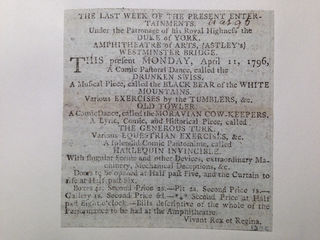 THE LAST WEEK OF THE PRESENT ENTER-
TAINMENTS.
Under the Patronage of his Royal Highness the
DUKE of YORK.
AMPHITHEATRE of ARTS, (ASTLEY's)
WESTMINSTER BRIDGE.
THIS present MONDAY, April 11, 1796,
A Comic Pastoral Dance, called the
DRUNKEN SWISS.
A Musical Piece, called the BLACK BEAR of the WHITE
MOUNTAINS.
Various EXERCISES by the TUMBLERS, &c.
OLD TOWLER.
A Comic Dance, called the MORAVIAN COW-KEEPERS.
A Lyric, Comic, and Historical Piece, called
THE GENEROUS TURK.
Various EQUESTRIAN EXERCISES, &c.
A splendid Comic Pantomime, called
HARLEQUIN INVINCIBLE.
With singular Scenic and other Devices, extraordinary Ma-
chinery, Mechanical Deceptions, &c.
Doors to be opened at Half past Five, and the Curtain to
rise at Half past Six.
Boxes 4s. Second Price 2s.—Pit 2s. Second Price 1s.—
Gallery 1s. Second Price 6d.—*⁎* Second Price at Half
past Eight o'clock.—Bills descriptive of the whole of the
Performance to be had at the Amphitheatre.
Vivant Rex et Regina.